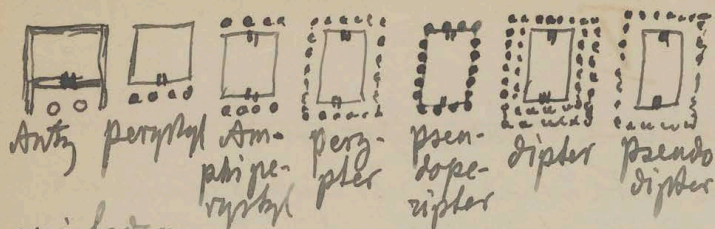 Anty
perystyl
Am-
phipe-
rystyl
pery-
pter
pseu-
dope-
ripter
dipter
pseudo
dipter